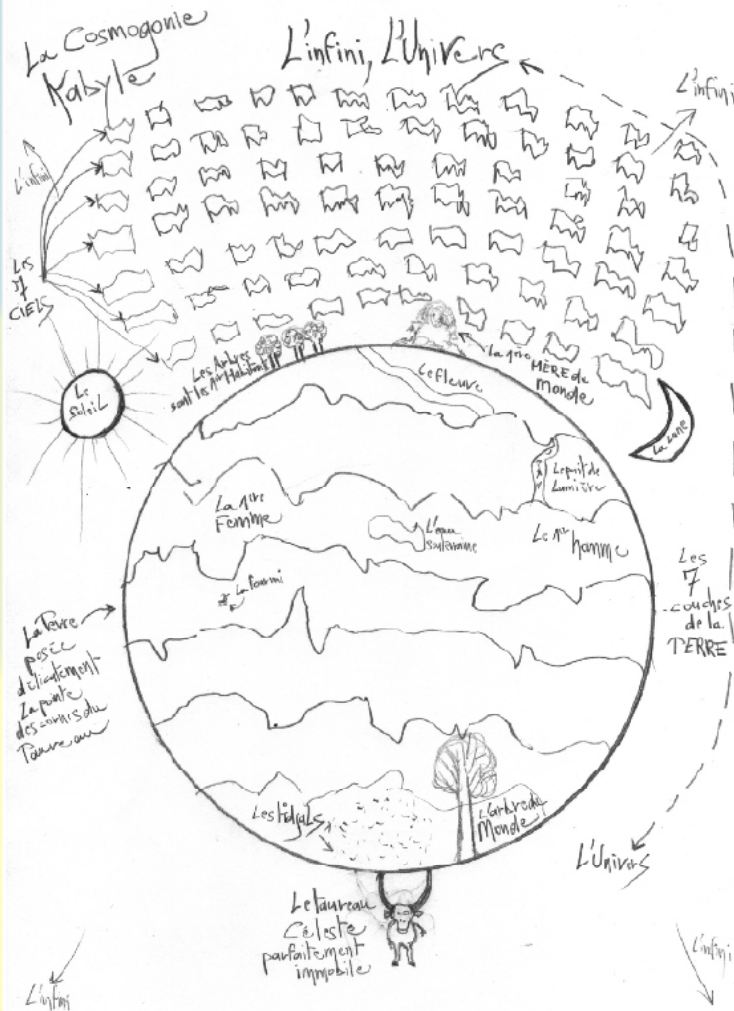 La Cosmogonie
Kabyle
L'infini, L'Univers
L'infini
L'infini
Les
7
CIELS
Le
Soleil
Les Arbres
sont les 1ers Habitants
La 1ère MÈRE du
Monde
La Lune
Le fleuve
Le puit de
Lumière
La 1ère
Femme
L'eau
Le 1er homme
La fourmi
Les
7
couches
de la
TERRE
La Terre
posée
délicatement
La pointe
des cornes du
Taureau
L'arbre du
Monde
L'Univers
Le taureau
Céleste
parfaitement
immobile
L'infini
L'infini